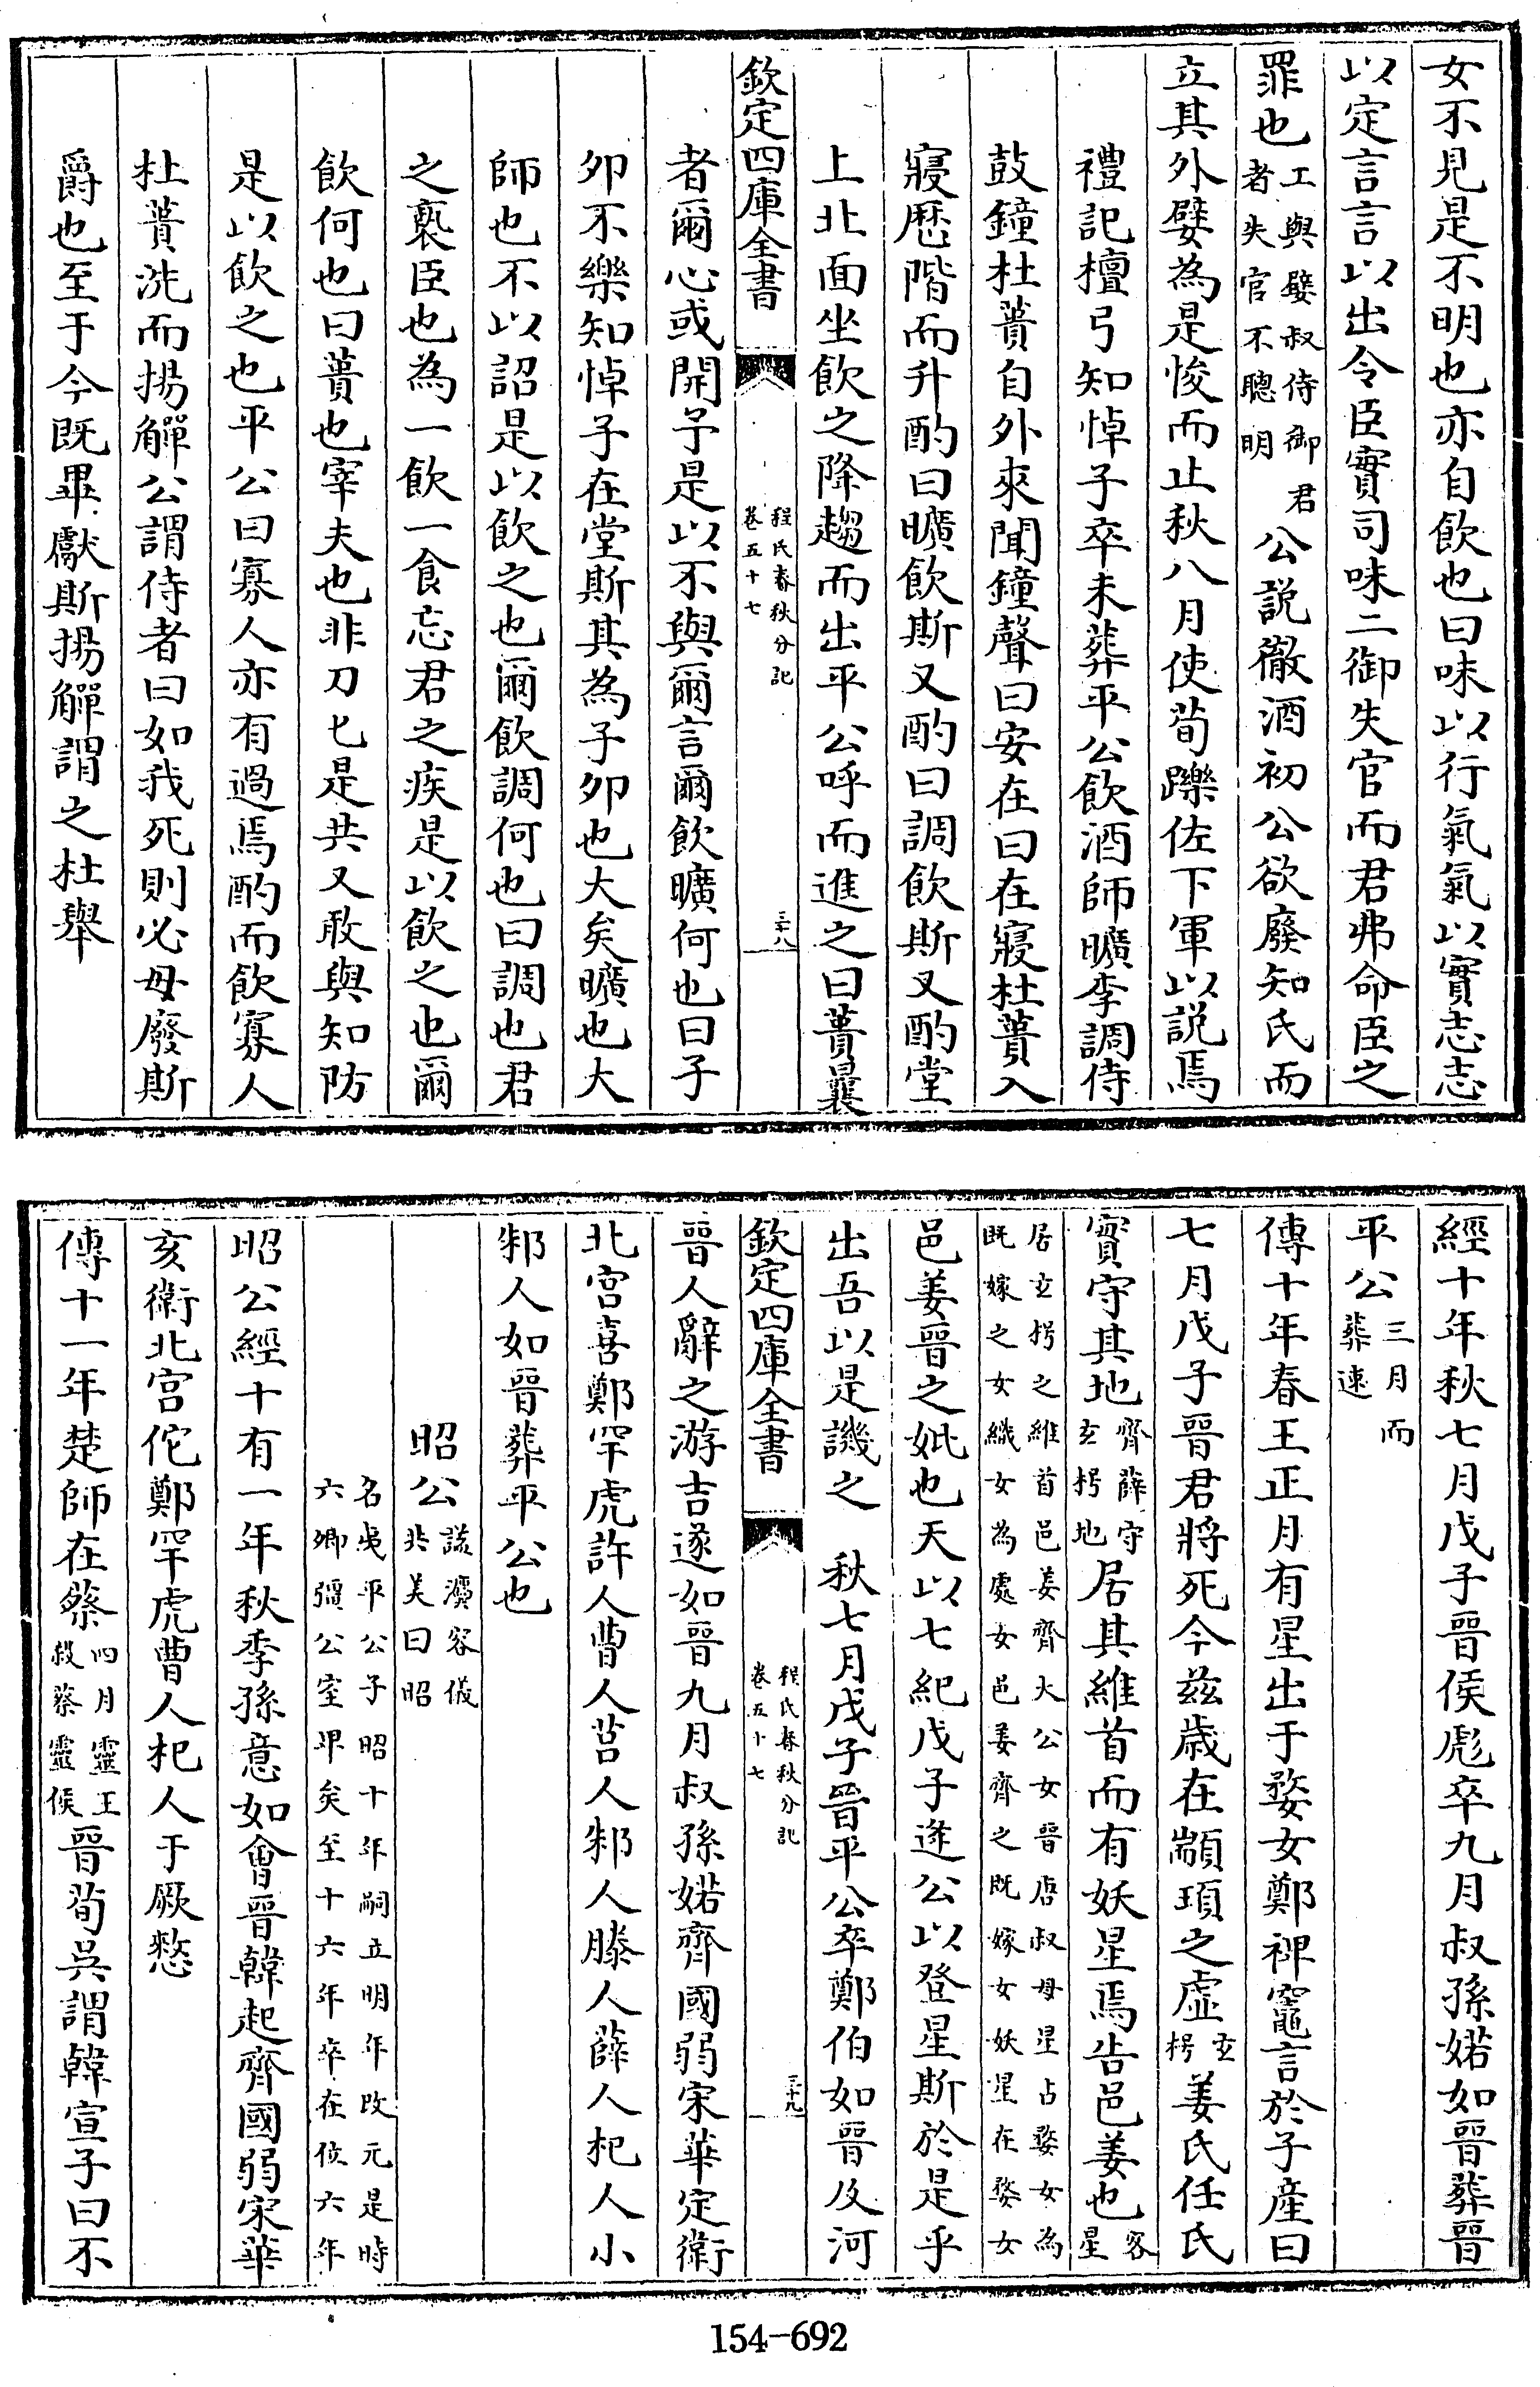 女不見是不明也亦自飲也曰味以行氣氣以實志志
以定言言以出令臣實司味二御失官而君弗命臣之
罪也工與嬖叔侍御君者失官不聰明公説徹酒初公欲廢知氏而
立其外嬖為是悛而止秋八月使荀躒佐下軍以説焉
禮記檀弓知悼子卒未葬平公飲酒師曠李調侍
鼓鐘杜蕢自外來聞鐘聲曰安在曰在寢杜蕢入
寢歴階而升酌曰曠飲斯又酌曰調飲斯又酌堂
上北面坐飲之降趨而出平公呼而進之曰蕢曩
欽定四庫全書
程氏春秋分記
卷五十七
三十八
者爾心或開予是以不與爾言爾飲曠何也曰子
夘不樂知悼子在堂斯其為子夘也大矣曠也大
師也不以詔是以飲之也爾飲調何也曰調也君
之褻臣也為一飲一食忘君之疾是以飲之也爾
飲何也曰蕢也宰夫也非刀匕是共又敢與知防
是以飲之也平公曰寡人亦有過焉酌而飲寡人
杜蕢洗而揚觶公謂侍者曰如我死則必毋廢斯
爵也至于今既畢獻斯揚觶謂之杜舉
經十年秋七月戊子晉侯彪卒九月叔孫婼如晉葬晉
平公三月而葬速
傳十年春王正月有星出于婺女鄭裨竈言於子産曰
七月戊子晉君將死今兹歳在顓頊之虚玄枵姜氏任氏
實守其地齊薛守玄枵地居其維首而有妖星焉告邑姜也客星
居玄枵之維首邑姜齊大公女晉唐叔母星占婺女為
既嫁之女織女為處女邑姜齊之既嫁女妖星在婺女
邑姜晉之妣也天以七紀戊子逄公以登星斯於是乎
出吾以是譏之　秋七月戊子晉平公卒鄭伯如晉及河
欽定四庫全書
程氏春秋分記
卷五十七
三十九
晉人辭之游吉遂如晉九月叔孫婼齊國弱宋華定衛
北宮喜鄭罕虎許人曹人莒人邾人滕人薛人杞人小
邾人如晉葬平公也
昭公諡灋容儀共美曰昭
名夷平公子昭十年嗣立明年改元是時
六卿彊公室卑矣至十六年卒在位六年
昭公經十有一年秋季孫意如會晉韓起齊國弱宋華
亥衛北宮佗鄭罕虎曹人杞人于厥憖
傳十一年楚師在蔡四月靈王殺蔡靈侯晉荀吳謂韓宣子曰不
154-692